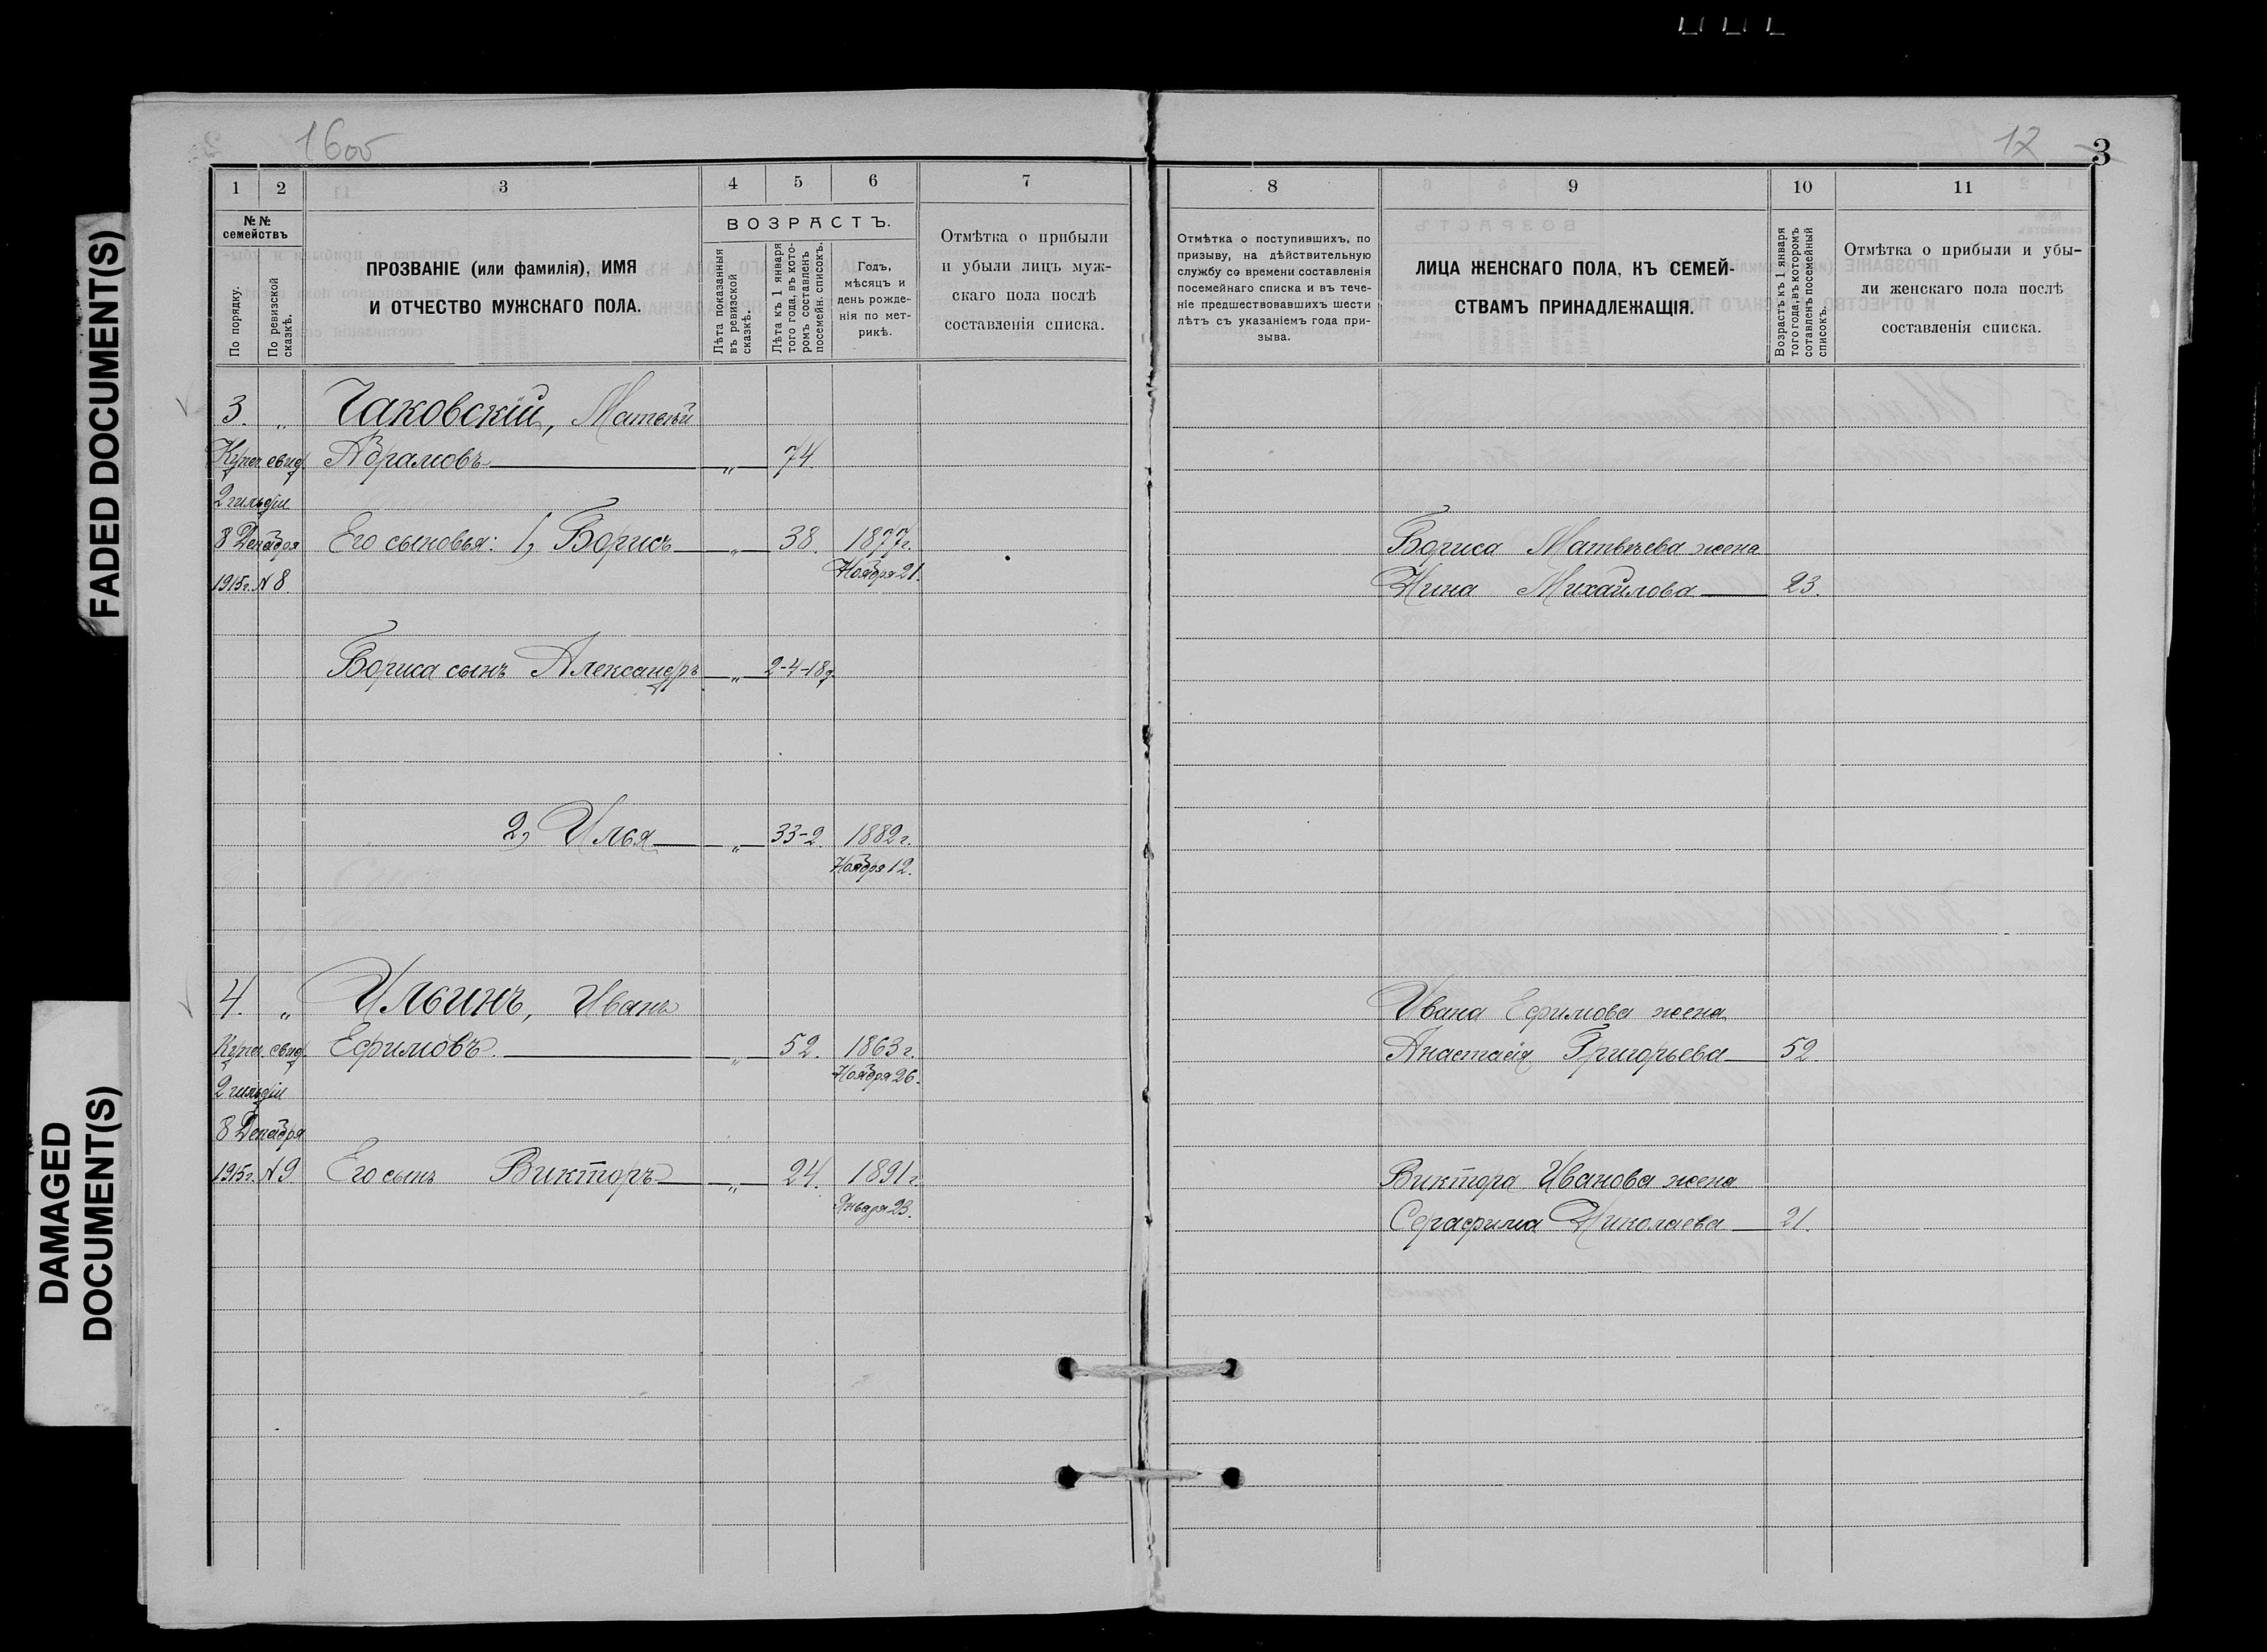 FADED DOCUMENT(S)
DAMAGED
DOCUMENT(S)
1600
12
3
1 2 3 4 5 6 7
№№
семействъ
По порядку.
По ревизской
сказкѣ.
ПРОЗВАНІЕ (или фамилія), ИМЯ
И ОТЧЕСТВО МУЖСКАГО ПОЛА.
ВОЗРАСТЪ.
Лѣта показанныя
въ ревизской
сказкѣ.
Лѣта къ 1 января
того года, въ кото-
ромъ составленъ
посемейн. списокъ.
Годъ,
мѣсяцъ и
день рожде-
нія по мет-
рикѣ.
Отмѣтка о прибыли
и убыли лицъ муж-
скаго пола послѣ
составленія списка.
3. „ Чаковскій, Матвѣй
Купеч. свид. Абрамовъ „ 74.
2 гильдіи
8 Декабря Его сыновья: 1, Борисъ „ 38. 1877г.
1915г. № 8. Ноября 21.
Бориса сынъ Александръ „ 2-4-18д.
2, Илья „ 33-2. 1882г.
Ноября 12.
4. „ Ильинъ, Иванъ
Купеч. свид. Ефимовъ „ 52. 1863г.
Ноября 26.
2 гильдіи
8 Декабря
1915г. № 9 Его сынъ Викторъ „ 24. 1891г
Января 23.
8 9 10 11
Отмѣтка о поступившихъ, по
призыву, на дѣйствительную
службу со времени составленія
посемейнаго списка и въ тече-
ніе предшествовавшихъ шести
лѣтъ съ указаніемъ года при-
зыва.
ЛИЦА ЖЕНСКАГО ПОЛА, КЪ СЕМЕЙ-
СТВАМЪ ПРИНАДЛЕЖАЩІЯ.
Возрастъ къ 1 января
того года, въ которомъ
сотавленъ посемейный
списокъ.
Отмѣтка о прибыли и убы-
ли женскаго пола послѣ
составленія списка.
Бориса Матвѣева жена
Нина Михайлова 23.
Ивана Ефимова жена
Анастасія Григорьева 52
Виктора Иванова жена
Серафима Николаева 21.